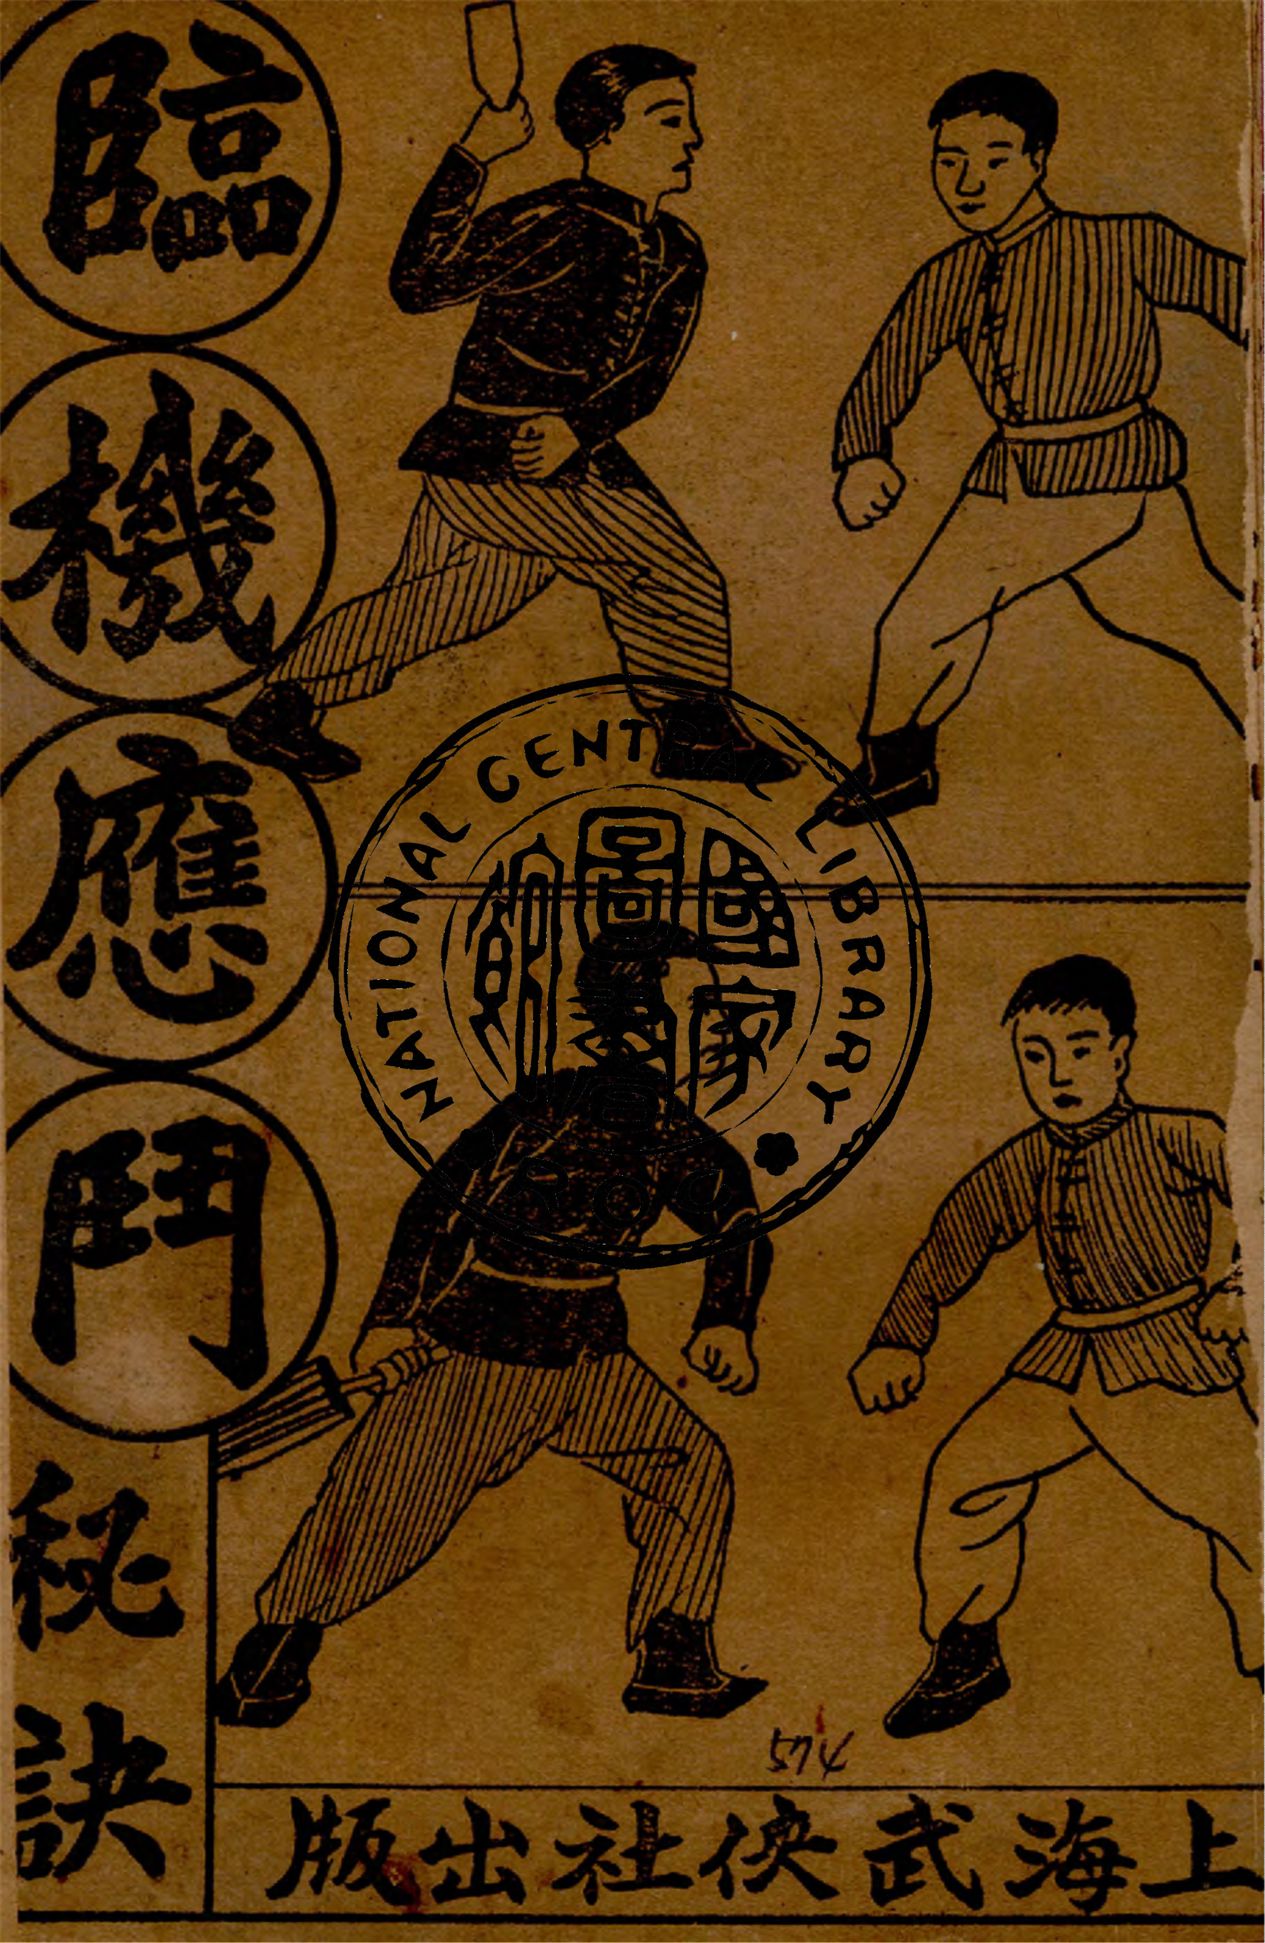 臨機應鬥秘訣
上海武俠社出版
574
NATIONAL CENTRAL LIBRARY
國家圖書館
R.O.C.